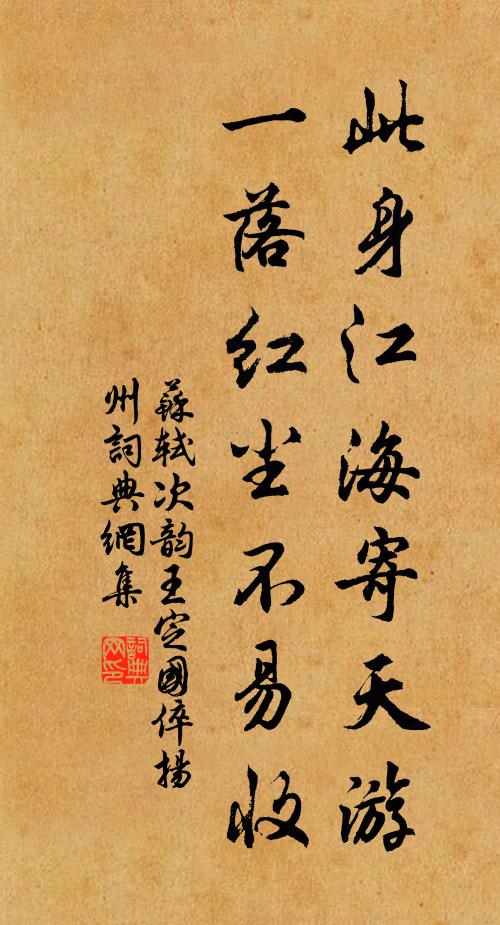 此身江海寄天游
一落红尘不易收
蘇轼次韵王定國倅揚
州詞典網集
詞典網印